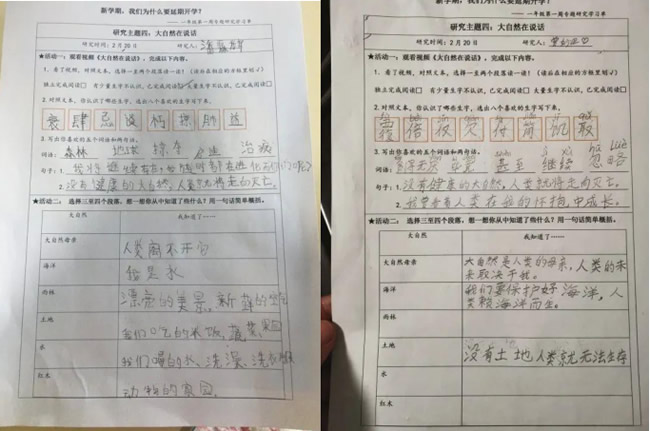 新学期，我们为什么要延期开学？
——一年级第一周专题研究学习单
研究主题四：大自然在说话
研究时间：2月20日 研究人：
★活动一：观看视频《大自然在说话》，完成以下内容。
1. 看了视频，对照文本，选择一至两个段落读一读！（读后在相应的方框里√）
独立完成阅读□ 有少量生字不认识，已完成阅读 大量生字不认识，已完成阅读□
2. 对照文本，你认识了哪些生字，选出八个喜欢的生字写下来。
衰 肆 忌 朽 探 肺 益
3. 写出你喜欢的五个词语和两句话。
词语： 森林 地球 治病
句子：1.
2. 没有健康的大自然，人类就将走向灭亡。
★活动二： 选择三至四个段落，想一想你从中知道了些什么？用一句话简单概括。
大自然 我知道了……
大自然母亲 人类离不开它
海洋 就是水
雨林 漂亮的美景、新鲜的空气
土地 我们吃的米饭，蔬菜，果园
水 我们喝的水、洗澡、洗衣服
红木 动物的家园
新学期，我们为什么要延期开学？
——一年级第一周专题研究学习单
研究主题四：大自然在说话
研究时间：2月20日 研究人：
★活动一：观看视频《大自然在说话》，完成以下内容。
1. 看了视频，对照文本，选择一至两个段落读一读！（读后在相应的方框里√）
独立完成阅读□ 有少量生字不认识，已完成阅读□ 大量生字不认识，已完成阅读□
2. 对照文本，你认识了哪些生字，选出八个喜欢的生字写下来。
霞 灵 付 简 凯
3. 写出你喜欢的五个词语和两句话。
词语： 甚至 继续 忽略
句子：1. 没有健康的大自然，人类就将走向灭亡。
2. 我要看着人类在我的怀抱中成长。
★活动二： 选择三至四个段落，想一想你从中知道了些什么？用一句话简单概括。
大自然 我知道了……
大自然母亲 大自然是人类的母亲，人类的未来取决于我。
海洋 我们要保护好海洋，人类赖海洋而生。
雨林
土地 没有土地人类就无法生存
水
红木